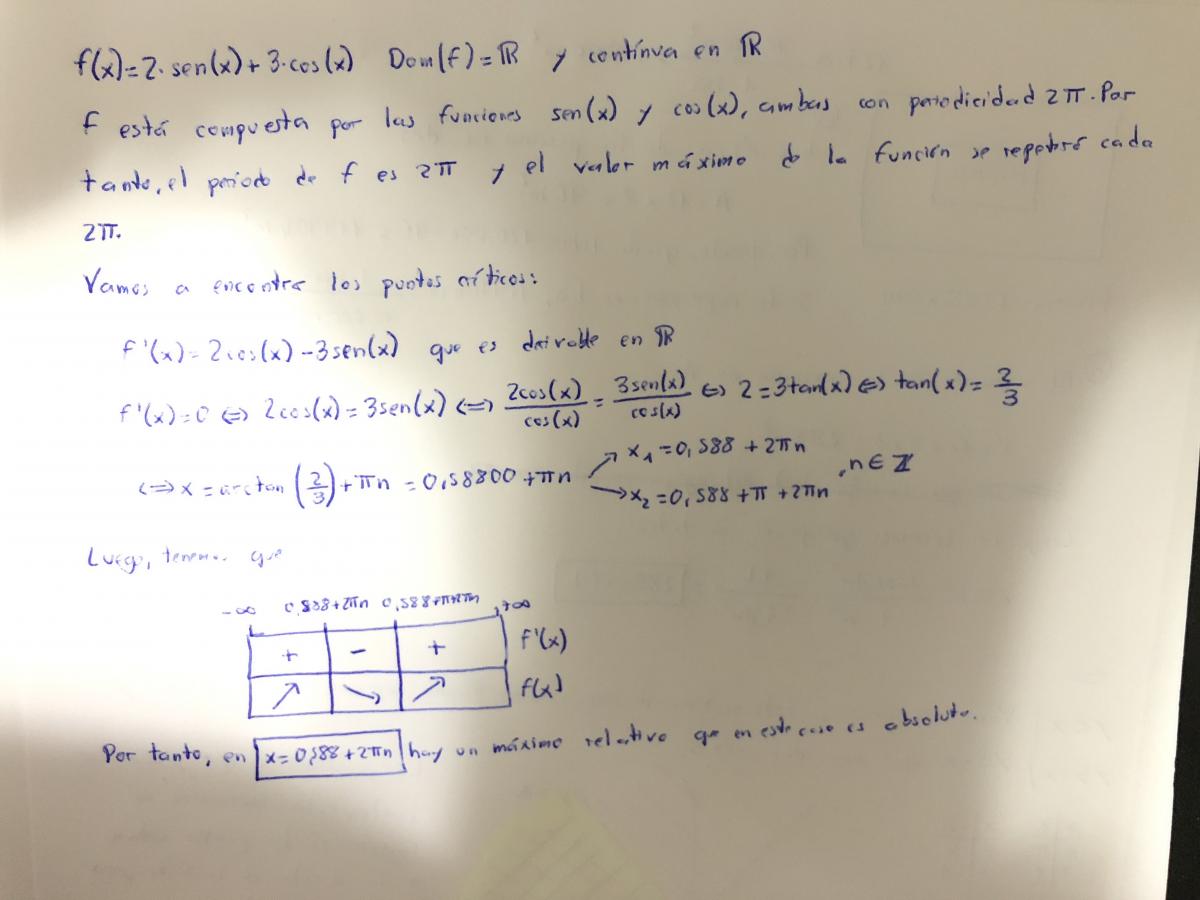 f(x)=2·sen(x)+3·cos(x) Dom(f)=ℝ y contínua en ℝ
f está compuesta por las funciones sen(x) y cos(x), ambas con periodicidad 2π. Por
tanto, el periodo de f es 2π y el valor máximo de la función se repetirá cada
2π.
Vamos a encontrar los puntos críticos:
f'(x)=2cos(x)-3sen(x) que es derivable en ℝ
f'(x)=0 ⇔ 2cos(x)=3sen(x) ⇔ 2cos(x)/cos(x) = 3sen(x)/cos(x) ⇔ 2=3tan(x) ⇔ tan(x)=2/3
⇔ x=arctan(2/3)+πn =0,58800+πn ↗ x₁=0,588+2πn ↘ x₂=0,588+π+2πn ,n∈ℤ
Luego, tenemos que
-∞ 0,588+2πn 0,588+π+2πn +∞
+ - + f'(x)
↗ ↘ ↗ f(x)
Por tanto, en x=0,588+2πn hay un máximo relativo que en este caso es absoluto.